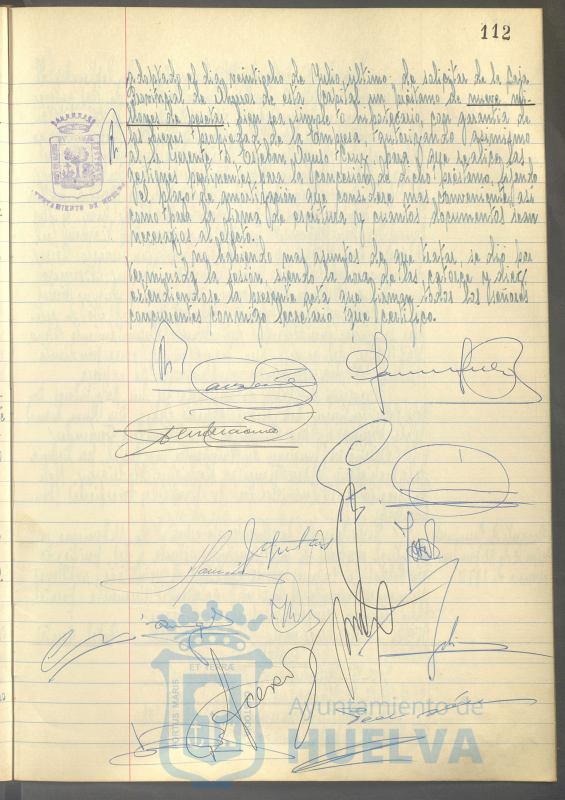 112
adoptado el dia veintiocho de Julio ultimo, de solicitar de la Caja
Provincial de Ahorros de esta Capital un prestamo de nueve mi-
llones de pesetas, bien sea simple o hipotecario, con garantia de
los bienes propiedad de la Empresa, autorizando asimismo
al Sr Gerente D. Esteban Cruz, para que realice las
gestiones pertinentes para la concesión de dicho préstamo, fijando
el plazo de amortización que considere mas conveniente, asi
como para la firma de escritura y cuantos documentos sean
necesarios al efecto.
Y no habiendo mas asuntos de que tratar, se dio por
terminada la sesión, siendo la hora de las catorce y diez,
extendiendose la presente acta que firman todos los Señores
concurrentes conmigo Secretario que certifico.
AYUNTAMIENTO DE HUELVA
PORTUS MARIS
ET TERRÆ
Ayuntamiento de
HUELVA